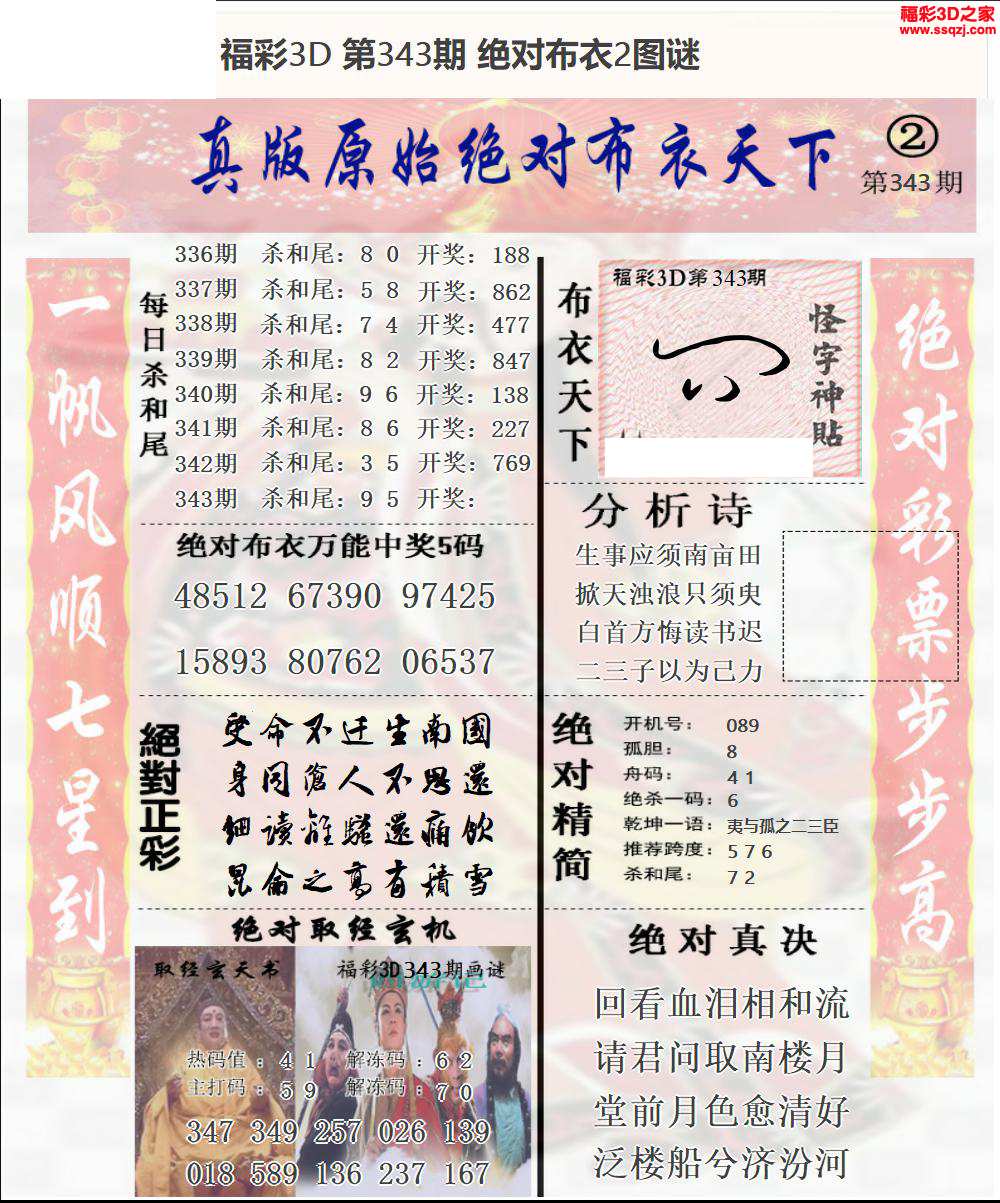 福彩3D之家
www.ssqzj.com
福彩3D 第343期 绝对布衣2图谜
真版原始绝对布衣天下
②
第343期
一帆风顺七星到
每日杀和尾
336期 杀和尾：8 0 开奖：188
337期 杀和尾：5 8 开奖：862
338期 杀和尾：7 4 开奖：477
339期 杀和尾：8 2 开奖：847
340期 杀和尾：9 6 开奖：138
341期 杀和尾：8 6 开奖：227
342期 杀和尾：3 5 开奖：769
343期 杀和尾：9 5 开奖：
绝对布衣万能中奖5码
48512 67390 97425
15893 80762 06537
絕對正彩
受命不迁生南國
身同滄人不思還
細讀離騷還痛飲
昆侖之高有積雪
绝对取经玄机
取经玄天书
福彩3D343期画谜
热码值：4 1 解冻码：6 2
主打码：5 9 解冻码：7 0
347 349 257 026 139
018 589 136 237 167
布衣天下
福彩3D第343期
怪字神貼
分析诗
生事应须南亩田
掀天浊浪只须臾
白首方悔读书迟
二三子以为己力
绝对精简
开机号： 089
孤胆： 8
舟码： 4 1
绝杀一码：6
乾坤一语：夷与孤之二三臣
推荐跨度：5 7 6
杀和尾： 7 2
绝对真决
回看血泪相和流
请君问取南楼月
堂前月色愈清好
泛楼船兮济汾河
绝对彩票步步高